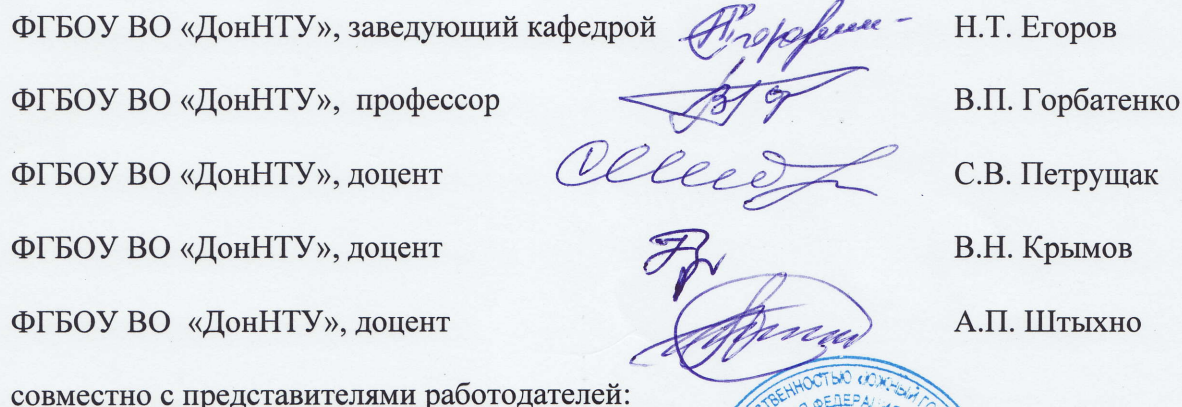 ФГБОУ ВО «ДонНТУ», заведующий кафедрой Н.Т. Егоров
ФГБОУ ВО «ДонНТУ», профессор В.П. Горбатенко
ФГБОУ ВО «ДонНТУ», доцент С.В. Петрущак
ФГБОУ ВО «ДонНТУ», доцент В.Н. Крымов
ФГБОУ ВО «ДонНТУ», доцент А.П. Штыхно
совместно с представителями работодателей: